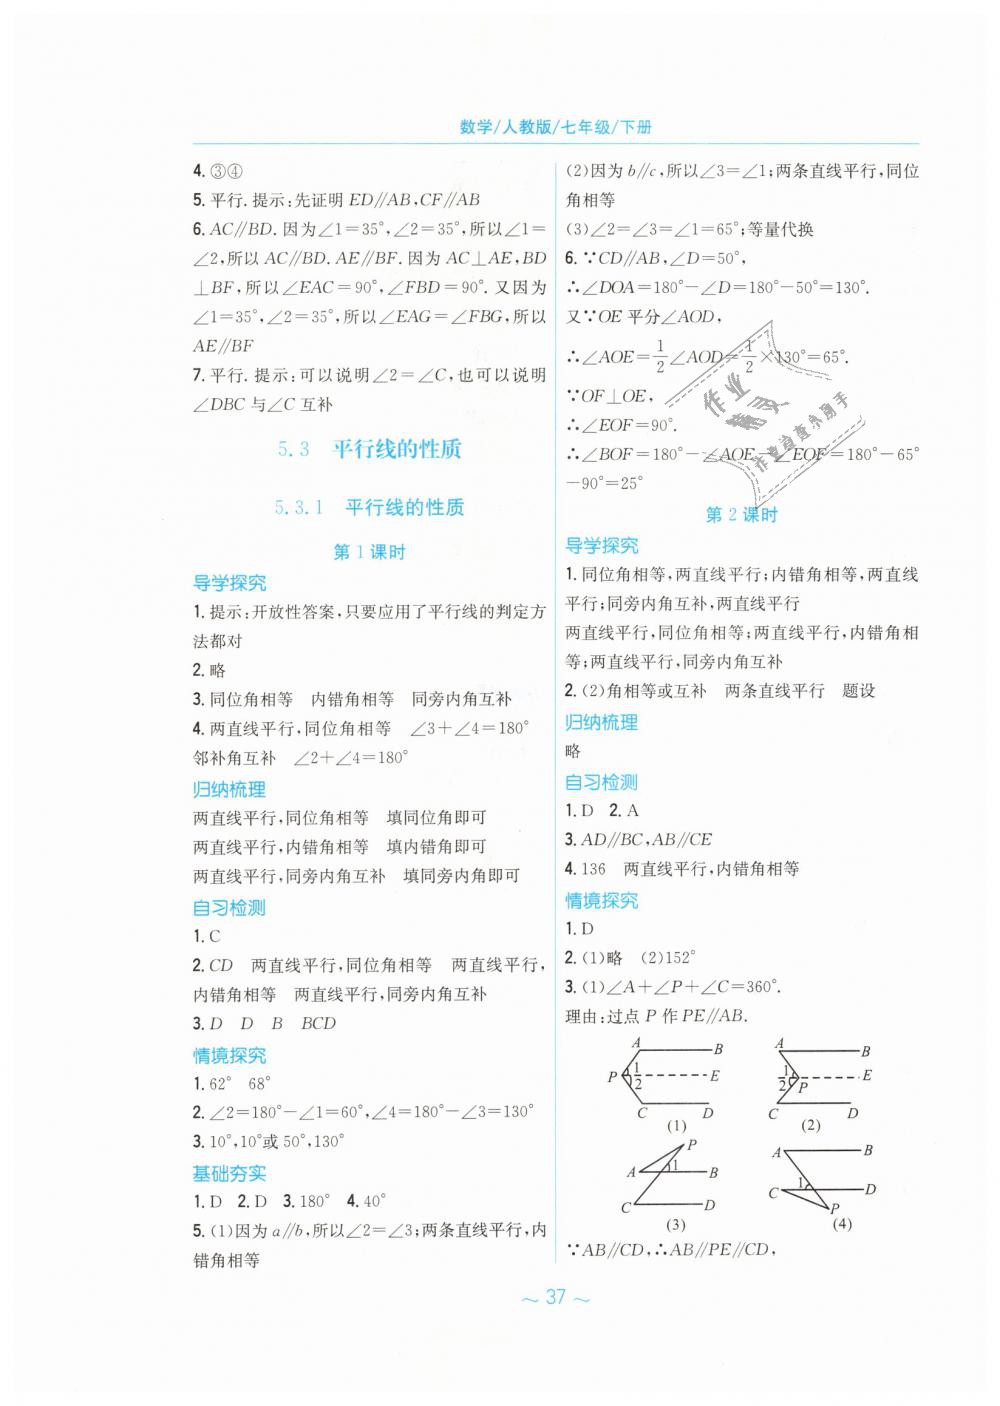 数学/人教版/七年级/下册
4. ③④
5. 平行. 提示:先证明 ED∥AB,CF∥AB
6. AC∥BD. 因为∠1=35°,∠2=35°,所以∠1=
∠2,所以 AC∥BD. AE∥BF. 因为 AC⊥AE,BD
⊥BF,所以∠EAC=90°,∠FBD=90°. 又因为
∠1=35°,∠2=35°,所以∠EAG=∠FBG,所以
AE∥BF
7. 平行. 提示:可以说明∠2=∠C,也可以说明
∠DBC 与∠C 互补
5.3 平行线的性质
5.3.1 平行线的性质
第 1 课时
导学探究
1. 提示:开放性答案,只要应用了平行线的判定方
法都对
2. 略
3. 同位角相等 内错角相等 同旁内角互补
4. 两直线平行,同位角相等 ∠3+∠4=180°
邻补角互补 ∠2+∠4=180°
归纳梳理
两直线平行,同位角相等 填同位角即可
两直线平行,内错角相等 填内错角即可
两直线平行,同旁内角互补 填同旁内角即可
自习检测
1. C
2. CD 两直线平行,同位角相等 两直线平行,
内错角相等 两直线平行,同旁内角互补
3. D D B BCD
情境探究
1. 62° 68°
2. ∠2=180°-∠1=60°,∠4=180°-∠3=130°
3. 10°,10°或 50°,130°
基础夯实
1. D 2. D 3. 180° 4. 40°
5. (1)因为 a∥b,所以∠2=∠3;两条直线平行,内
错角相等
(2)因为 b∥c,所以∠3=∠1;两条直线平行,同位
角相等
(3)∠2=∠3=∠1=65°;等量代换
6. ∵CD∥AB,∠D=50°,
∴∠DOA=180°-∠D=180°-50°=130°.
又∵OE 平分∠AOD,
∴∠AOE=1/2∠AOD=1/2×130°=65°.
∵OF⊥OE,
∴∠EOF=90°.
∴∠BOF=180°-∠AOE-∠EOF=180°-65°
-90°=25°
作业
精灵
作业检查小助手
第 2 课时
导学探究
1. 同位角相等,两直线平行;内错角相等,两直线
平行;同旁内角互补,两直线平行
两直线平行,同位角相等;两直线平行,内错角相
等;两直线平行,同旁内角互补
2. (2)角相等或互补 两条直线平行 题设
归纳梳理
略
自习检测
1. D 2. A
3. AD∥BC,AB∥CE
4. 136 两直线平行,内错角相等
情境探究
1. D
2. (1)略 (2)152°
3. (1)∠A+∠P+∠C=360°.
理由:过点 P 作 PE∥AB.
A B
P 1 2 E
C D
(1)
A B
1 2 P E
C D
(2)
P
A 1 B
C D
(3)
A B
C 1 D
P
(4)
∵AB∥CD,∴AB∥PE∥CD,
～ 37 ～